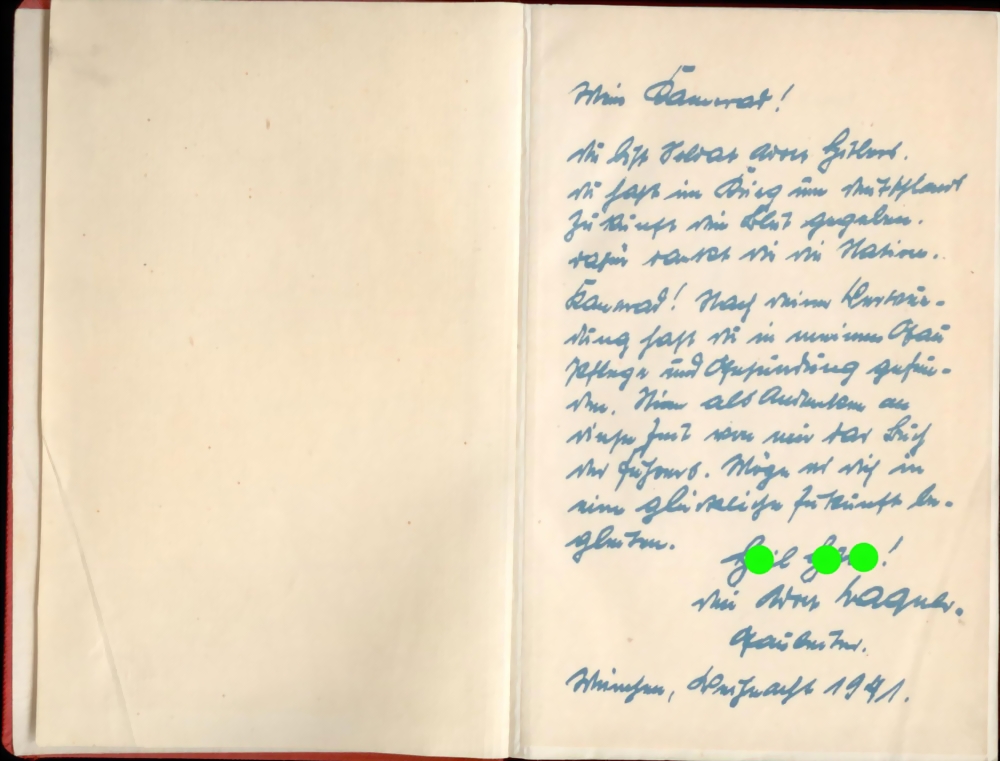 Mein Kamerad!
Du bist Soldat Adolf Hitlers.
Du hast im Krieg um Deutschlands
Zukunft dein Blut gegeben.
Dafür dankt dir die Nation.
Kamerad! Nach deiner Verwun-
dung hast du in meinem Gau
Pflege und Gesundung gefun-
den. Nimm als Andenken an
diese Zeit von mir das Buch
des Führers. Möge es dich in
eine glückliche Zukunft be-
gleiten.
Dein Adolf Wagner.
Gauleiter.
München, Weihnacht 1941.